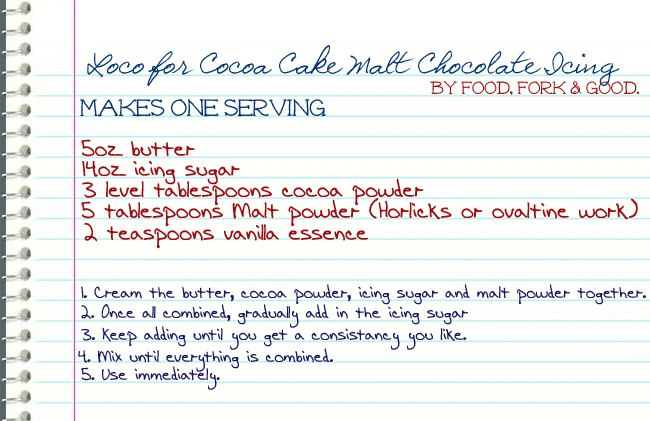 Loco for Cocoa Cake Malt Chocolate Icing
BY FOOD, FORK & GOOD.
MAKES ONE SERVING
5oz butter
14oz icing sugar
3 level tablespoons cocoa powder
5 tablespoons Malt powder (Horlicks or ovaltine work)
2 teaspoons vanilla essence
1. Cream the butter, cocoa powder, icing sugar and malt powder together.
2. Once all combined, gradually add in the icing sugar
3. Keep adding until you get a consistancy you like.
4. Mix until everything is combined.
5. Use immediately.